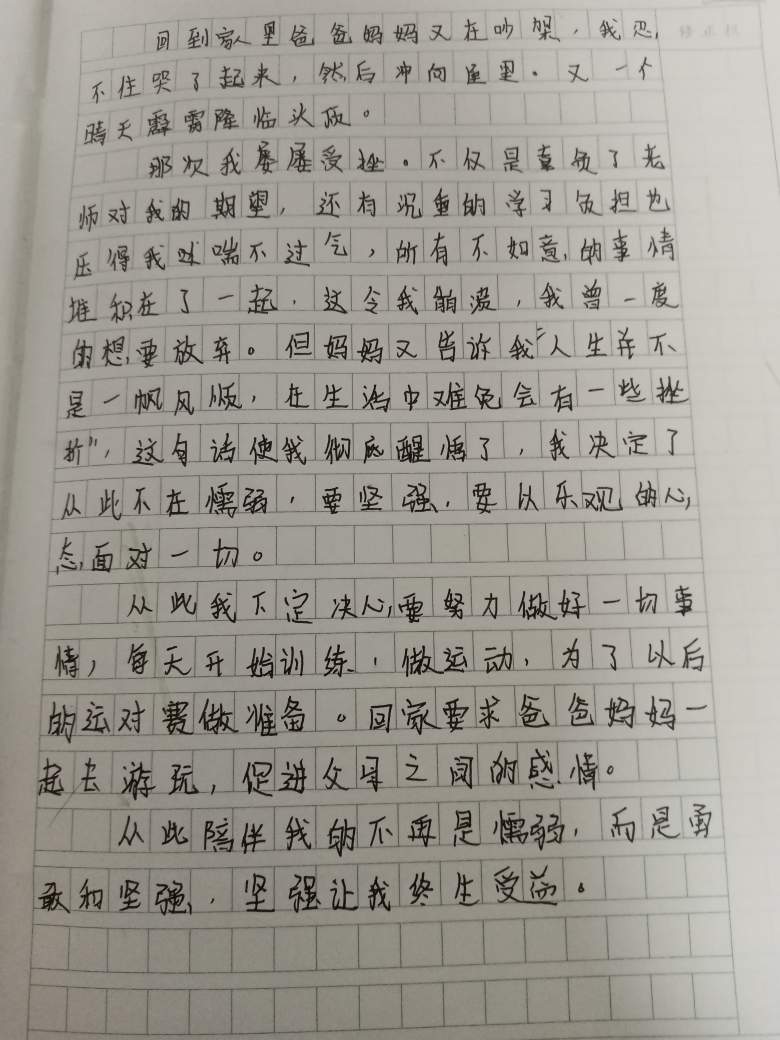 回到家里爸爸妈妈又在吵架，我忍
不住哭了起来，然后冲向屋里。又一个
晴天霹雳降临头顶。
那次我屡屡受挫。不仅是辜负了老
师对我的期望，还有沉重的学习负担也
压得我喘不过气，所有不如意的事情
堆积在了一起，这令我崩溃，我曾一度
的想要放弃。但妈妈又告诉我“人生并不
是一帆风顺，在生活中难免会有一些挫
折”，这句话使我彻底醒悟了，我决定了
从此不在懦弱，要坚强，要以乐观的心
态面对一切。
从此我下定决心，要努力做好一切事
情，每天开始训练，做运动，为了以后
的运对赛做准备。回家要求爸爸妈妈一
起去游玩，促进父母之间的感情。
从此陪伴我的不再是懦弱，而是勇
敢和坚强，坚强让我终生受益。